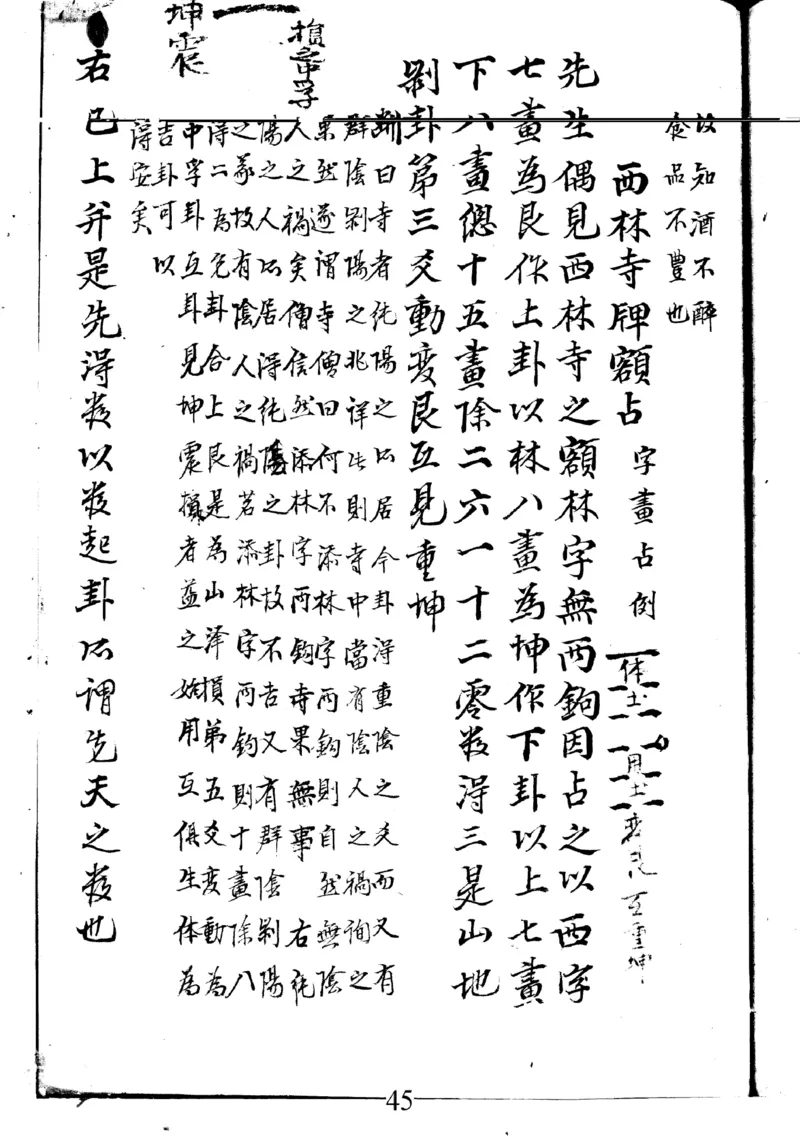 故知酒不醉
食品不豐也
西林寺牌額占 字畫占例
体土
用土
变艮
互重坤
先生偶見西林寺之額林字無兩鉤因占之以西字
七畫為艮作上卦以林八畫為坤作下卦以上七畫
下八畫總十五畫除二六一十二零数淂三是山地
剥卦第三爻動变艮互見重坤
断曰寺者純陽之所居今卦淂重陰之爻而又有
群陰剥陽之兆詳此則寺中當有陰人之禍詢之
果然遂謂寺僧曰何不添林字兩鈎則自然無陰
人之禍矣僧信然添林字兩鈎寺果無事 右純
陽之人所居淂純陰之卦故不吉又有群陰剥陽
之象故有陰人之禍若添林字兩鈎則十畫除八
淂二為兌卦合上艮是為山泽損第五爻变動為
中孚卦互卦見坤震損者益之始用互俱生体為
吉卦可以
淂安矣
損中孚
坤震
右已上并是先淂数以数起卦所謂先天之数也
45